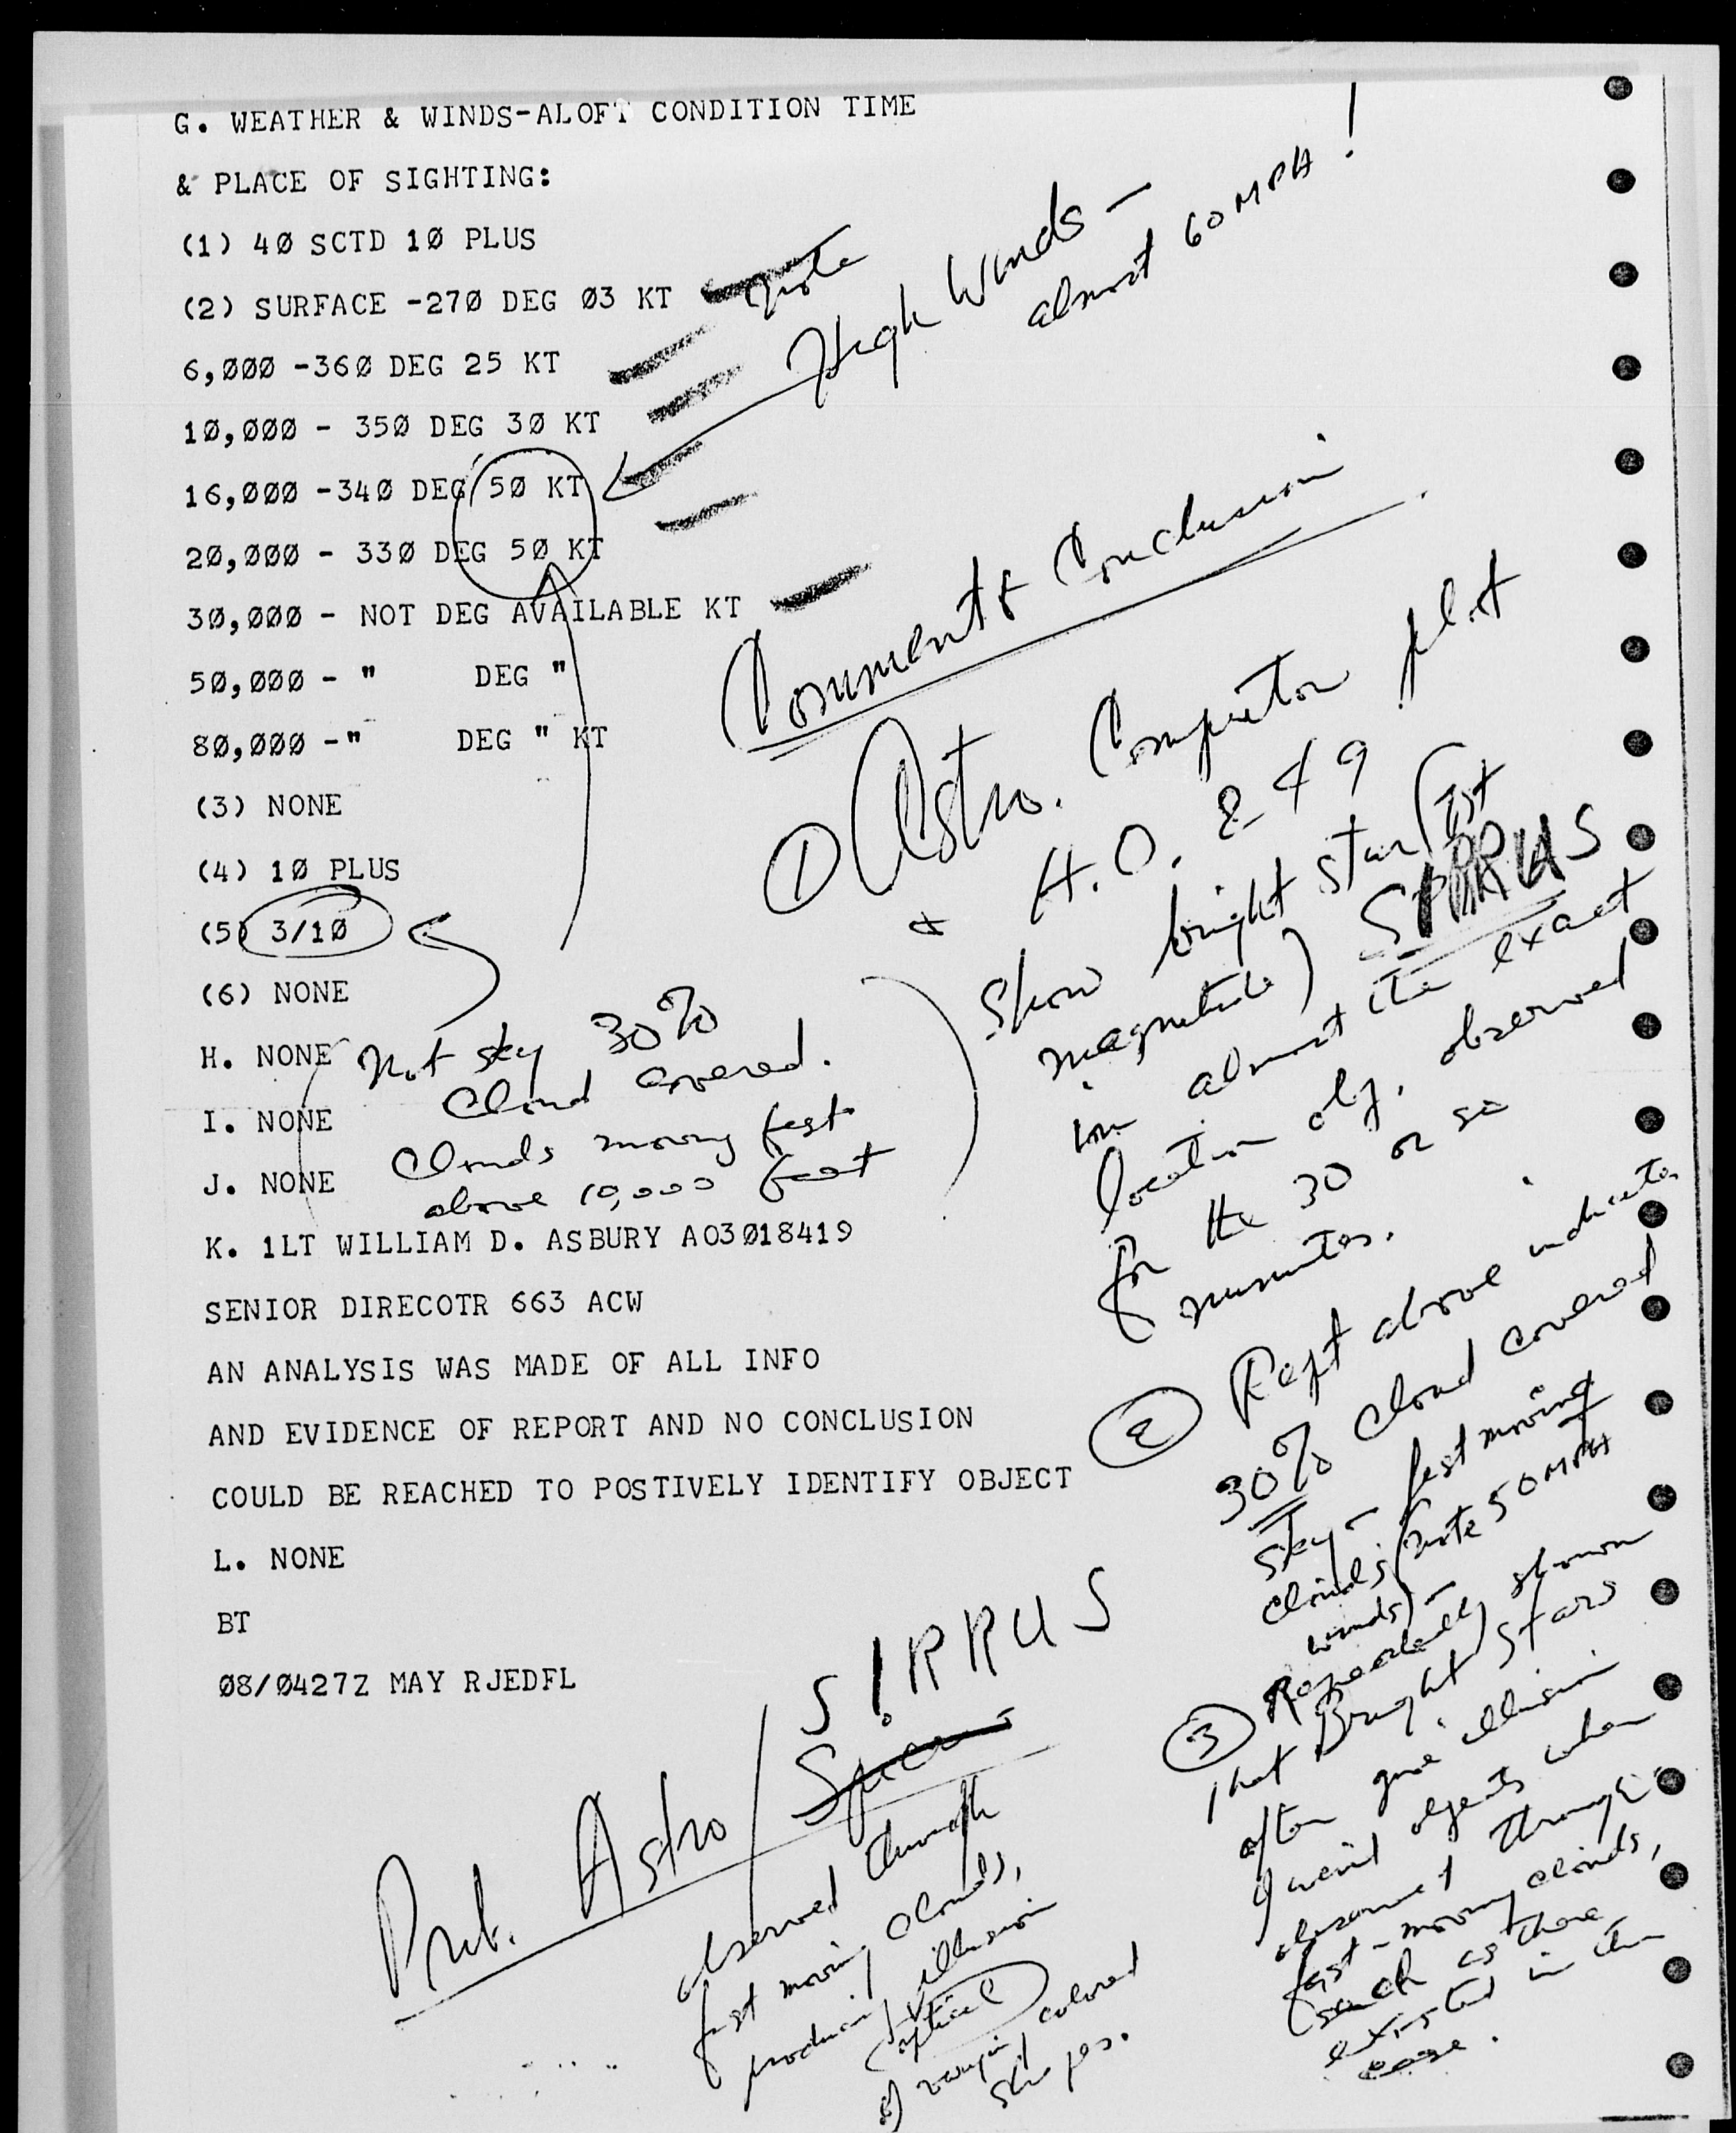 G. WEATHER & WINDS-ALOFT CONDITION TIME
& PLACE OF SIGHTING:
(1) 4Ø SCTD 1Ø PLUS
(2) SURFACE -27Ø DEG Ø3 KT
6,ØØØ -36Ø DEG 25 KT
1Ø,ØØØ - 35Ø DEG 3Ø KT
16,ØØØ -34Ø DEG 5Ø KT
2Ø,ØØØ - 33Ø DEG 5Ø KT
3Ø,ØØØ - NOT DEG AVAILABLE KT
5Ø,ØØØ - " DEG "
8Ø,ØØØ -" DEG " KT
(3) NONE
(4) 1Ø PLUS
(5) 3/1Ø
(6) NONE
H. NONE
I. NONE
J. NONE
K. 1LT WILLIAM D. ASBURY AO3Ø18419
SENIOR DIRECOTR 663 ACW
AN ANALYSIS WAS MADE OF ALL INFO
AND EVIDENCE OF REPORT AND NO CONCLUSION
COULD BE REACHED TO POSTIVELY IDENTIFY OBJECT
L. NONE
BT
Ø8/Ø427Z MAY RJEDFL
note
High Winds -
almost 60 MPH!
Not sky 30%
Cloud covered.
Clouds moving fast
above 10,000 feet
Comment & Conclusion
① Astro. Computor plot
& H.O. 249
Show bright star (1st
magnitude) SIRRUS
in almost the exact
location obj. observed
for the 30 or so
minutes.
② Rept above indicates
30% cloud covered
sky - fast moving
clouds (note 50 MPH
winds) -
③ Repeatedly shown
that Bright stars
often give illusion
weird objects when
observed through
fast-moving clouds,
such as those
existed in this
case.
Prob. Astro/SIRRUS
Spica
observed through
fast moving clouds,
producing optical illusion
of varying colored
shapes.